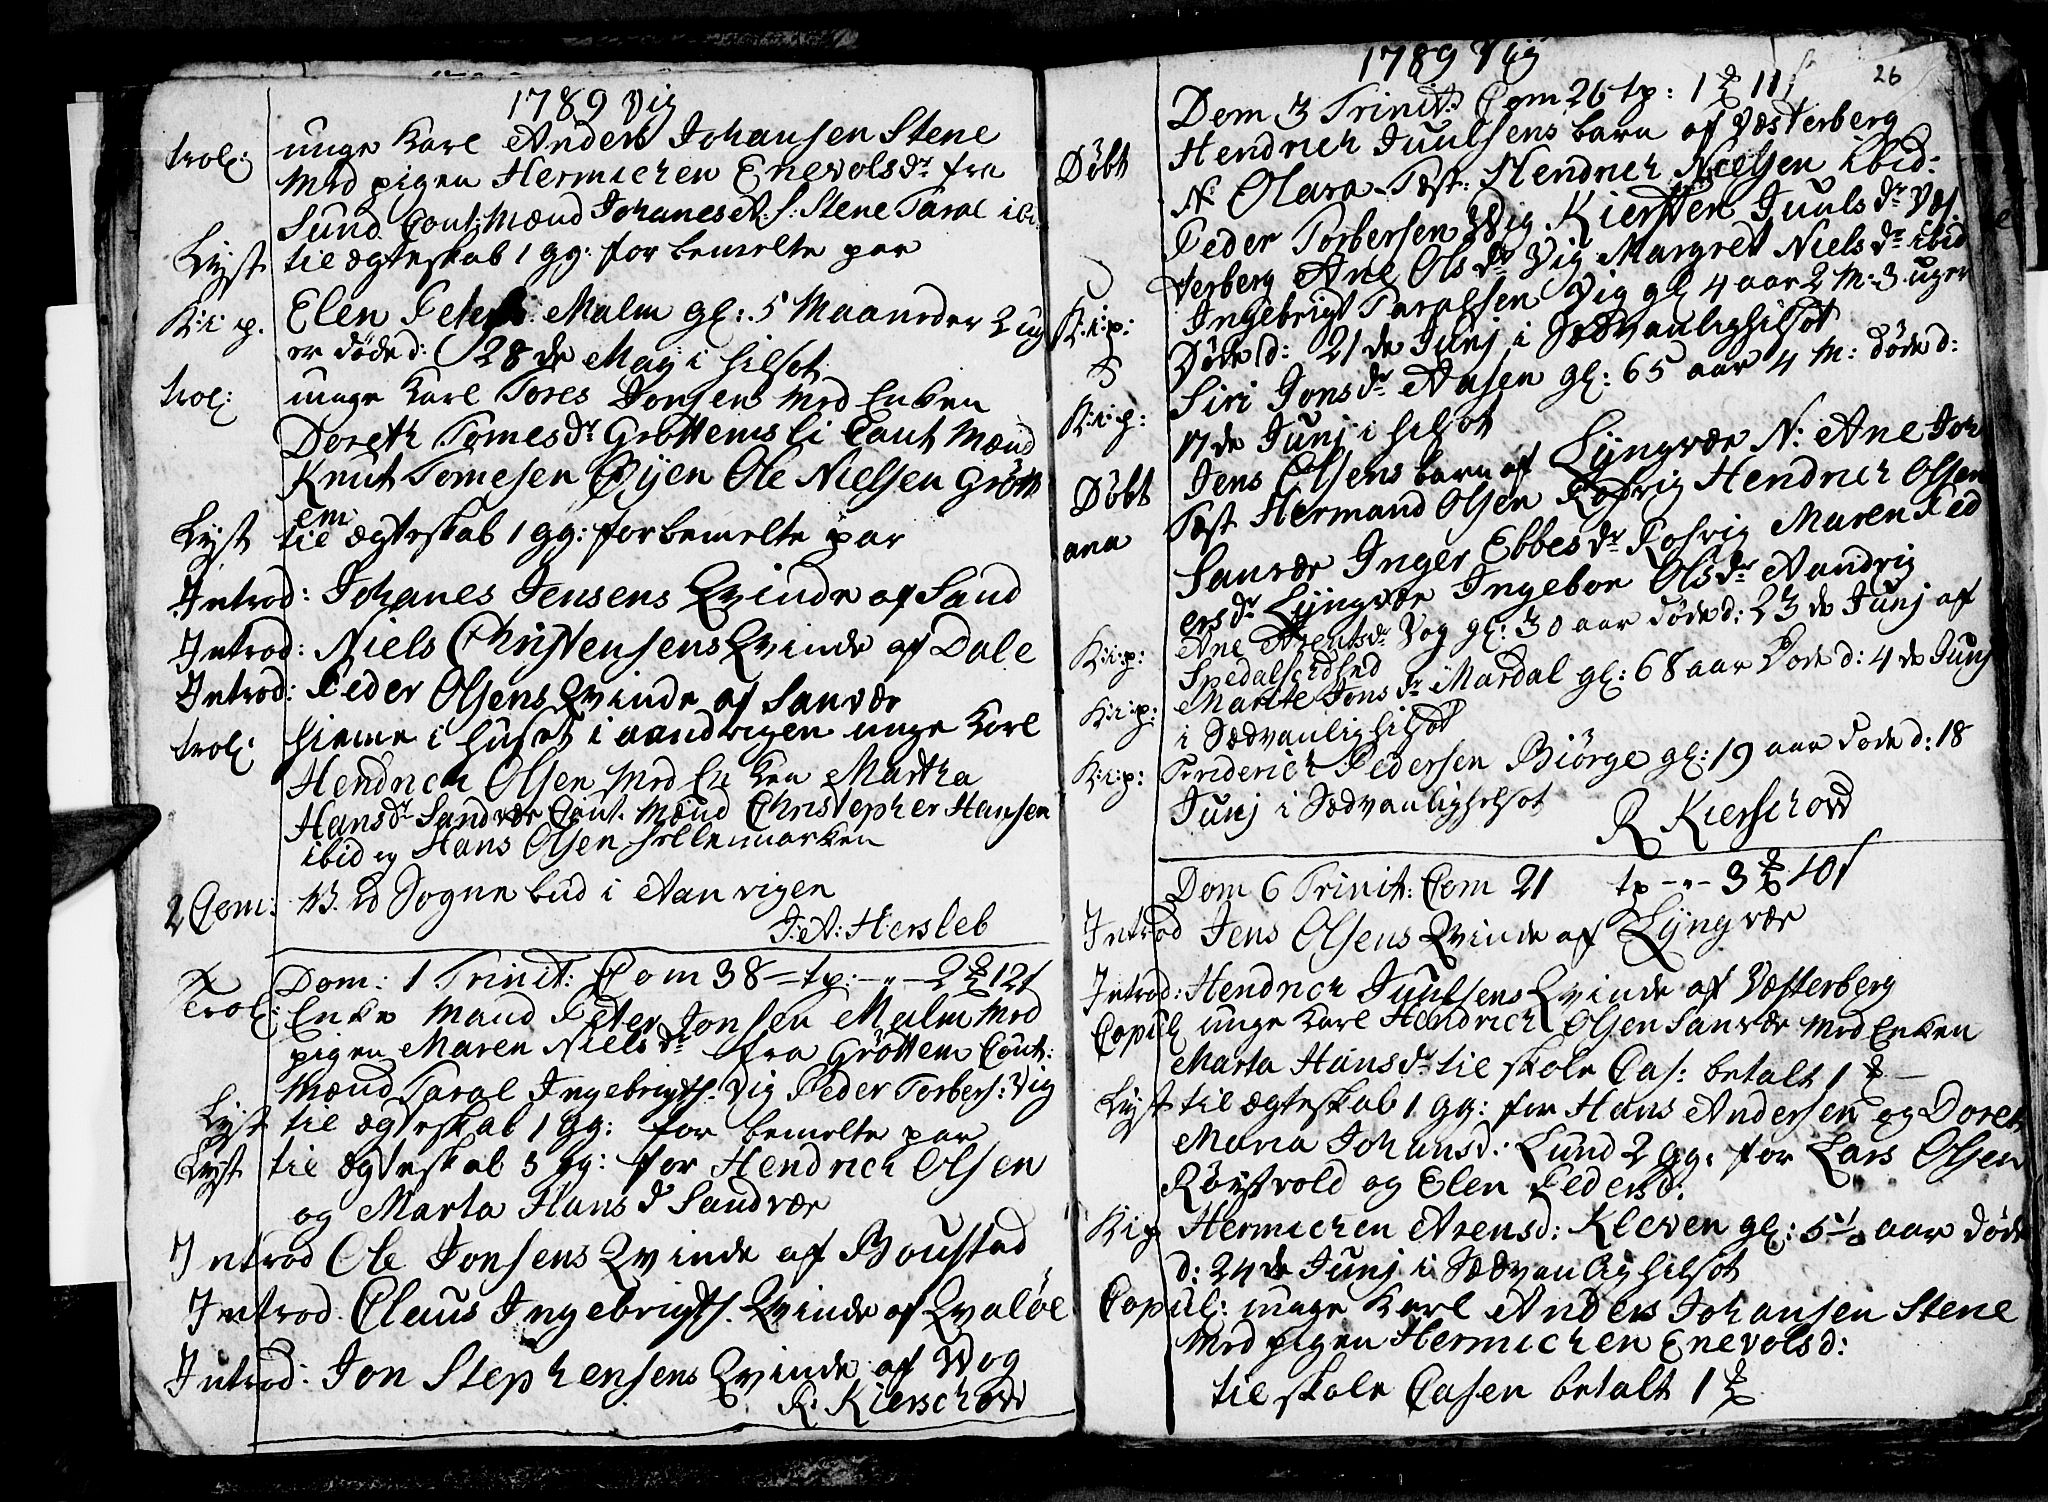 1789 Vig
trol: unge Karl Anders Johansen Stene
med pigen Hermichen Enevolsdr fra
Sund Caut: Mænd Johanes A: S: Stene Taral ibi
Lyst til ægteskab 1 gg: for bemelte par
K: i: p. Elen Peters: Malm gl: 5 Maaneder 2 ug
er døde d: 28 de May i hilsot
trol: unge Karl Tores Jonsen med Enken
Doreth Tomesdr Grøttems li Caut Mænd
Knut Tomesen Øyen Ole Nielsen Grøtt
em
Lyst til ægteskab 1 gg: for bemelte par
Introd: Johanes Jensens Qvinde af Sand
Introd: Niels Christensens Qvinde af Dale
Introd: Peder Olsens Qvinde af Sanvær
trol: hieme i huset i aandvigen unge Karl
Hendrich Olsen med Enken Martha
Hansdr Sandvær Caut. Mænd Christopher Hansen
ibid og Hans Olsen hellemarken
2 Com: Sogne bud i Aanvigen
J: A: Hersleb
Dom: 1 Trinit: Com 38 = tp: - " - 2 12 f
Trol: Enke Mand Peter Jonsen Malm med
pigen Maren Nielsdr fra Grøttem Caut:
Mænd Taral Ingebrigts. Vig Peder Torbers: Vig
Lyst til ægteskab 1 gg: for bemelte par
Lyst til ægteskab 3 gg: for Hendrich Olsen
og Marta Hans d Sandvær
Introd Ole Jonsens Qvinde af Boustad
Introd Claus Ingebrigts. Qvinde af Qvaløe
Introd: Jon Stephensens Qvinde af Vog
R. Kierschow
1789 Vig
26
Dom 3 Trinit: Com 26 tp: 1 11 f
Døbt Hendrich Juulsens barn af Væsterberg
N: Olara Tæst: Hendrich Nielsen ibid:
Peder Torbersen Vig. Kiersten Juulsdr Væs
terberg Ane Olsdr Vig Margret Nielsdr ibid
K: i: p: Ingebrigt Taralsen Vig gl 4 aar 2 M: 3 uger
Døde d: 21 de Junj i Sædvanlighilsot
K: i: p: Siri Jonsdr Aasen gl: 65 aar 4 M: døde d:
17 de Junj i hilsot
Døbt Jens Olsens barn af Lyngvær N: Ane Joh
ana Tæst Hermand Olsen Rosvig Hendrich Olsen
Sanvær Inger Ebbesdr Rosvig Maren Ped
ersdr Lyngvær Ingebor Olsdr Aandvig
K: i: p: Ane Arentsdr Vog gl: 30 aar døde d: 23 de Junj af
Spedalschdhed
K: i: p: Marite Jonsdr Mardal gl: 68 aar Døde d: 4 de Junj
i Sædvanlighilsot
K: i: p: Friderich Pedersen Biørge gl: 19 aar døde d: 18
Junj i Sædvanlighhilsot
R Kierschow
Dom 6 Trinit: Com 21 tp - " - 3 10 f
Introd Jens Olsens Qvinde af Lyngvær
Introd: Hendrich Juulsens Qvinde af Væsterberg
Copul unge Karl Hendrich Olsen Sanvær med Enken
Marta Hansdr til skole Cas: betalt 1
Lyst til ægteskab 1 gg: for Hans Andersen og Doret
Maria Johansd: Lund 2 gg: for Lars Olsen
Røistvold og Elen Pedersd:
K i p Hermichen Arensd: Kleven gl: 5 aar døde
d: 24 de Junj i Sædvanlighilsot
Copul: unge Karl Anders Johansen Stene
med pigen Hermichen Enevolsd:
til skole Casen betalt 1